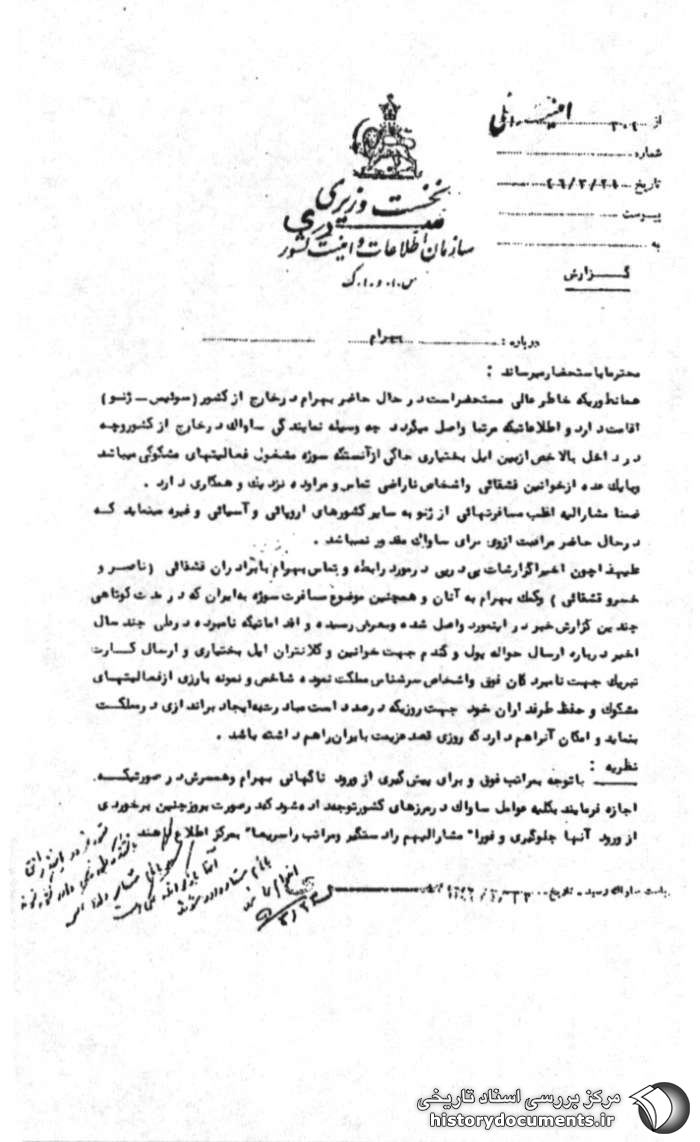 از ۳۰۶ امنیت داخلی
شماره
تاریخ ۴۶/۳/۲۱
پیوست
به
گزارش
نخست وزیری
سازمان اطلاعات و امنیت کشور
س.ا.و.ا.ک
درباره : بهرام
محترما باستحضار میرساند :
همانطوریکه خاطر عالی مستحضر است در حال حاضر بهرام در خارج از کشور (سوئیس – ژنو)
اقامت دارد و اطلاعاتیکه مرتبا واصل میگردد چه وسیله نمایندگی ساواک در خارج از کشور و چه
در داخل بالاخص از بین ایل بختیاری حاکی از آنستکه سوژه مشغول فعالیتهای مشکوکی میباشد
و با یک عده از خوانین قشقائی و اشخاص ناراضی تماس و مراوده نزدیک و همکاری دارد .
ضمنا مشارالیه اغلب مسافرتهائی از ژنو به سایر کشورهای اروپائی و آسیائی و غیره مینماید که
در حال حاضر مراقبت از وی برای ساواک مقدور نمیباشد .
علیهذا چون اخیرا گزارشات پی در پی در مورد رابطه و تماس بهرام با برادران قشقائی (ناصر و
خسرو قشقائی) و کمک بهرام به آنان و همچنین موضوع مسافرت سوژه به ایران که در مدت کوتاهی
چندین گزارش خبر در اینمورد واصل شده و بعرض رسیده و اقداماتیکه نامبرده در طی چند سال
اخیر درباره ارسال حواله پول و گندم جهت خوانین و کلانتران ایل بختیاری و ارسال کارت
تبریک جهت نامبردگان فوق و اشخاص سرشناس مملکت نموده شاخص و نمونه بارزی از فعالیتهای
مشکوک و حفظ طرفداران خود جهت روزیکه درصدد است مبادرت به ایجاد براندازی در مملکت
بنماید و امکان آنرا هم دارد که روزی قصد عزیمت بایران را هم داشته باشد .
نظریه :
با توجه بمراتب فوق و برای پیش گیری از ورود ناگهانی بهرام و همسرش در صورتیکه
اجازه فرمایند بکلیه عوامل ساواک در مرزهای کشور توجه داده شود که در صورت بروز چنین برخوردی
از ورود آنها جلوگیری و فورا" مشارالیهم را دستگیر و مراتب را سریعا" بمرکز اطلاع دهند
ریاست ساواک رسید – تاریخ
۳/۲۳
مرکز بررسی اسناد تاریخی
historydocuments.ir